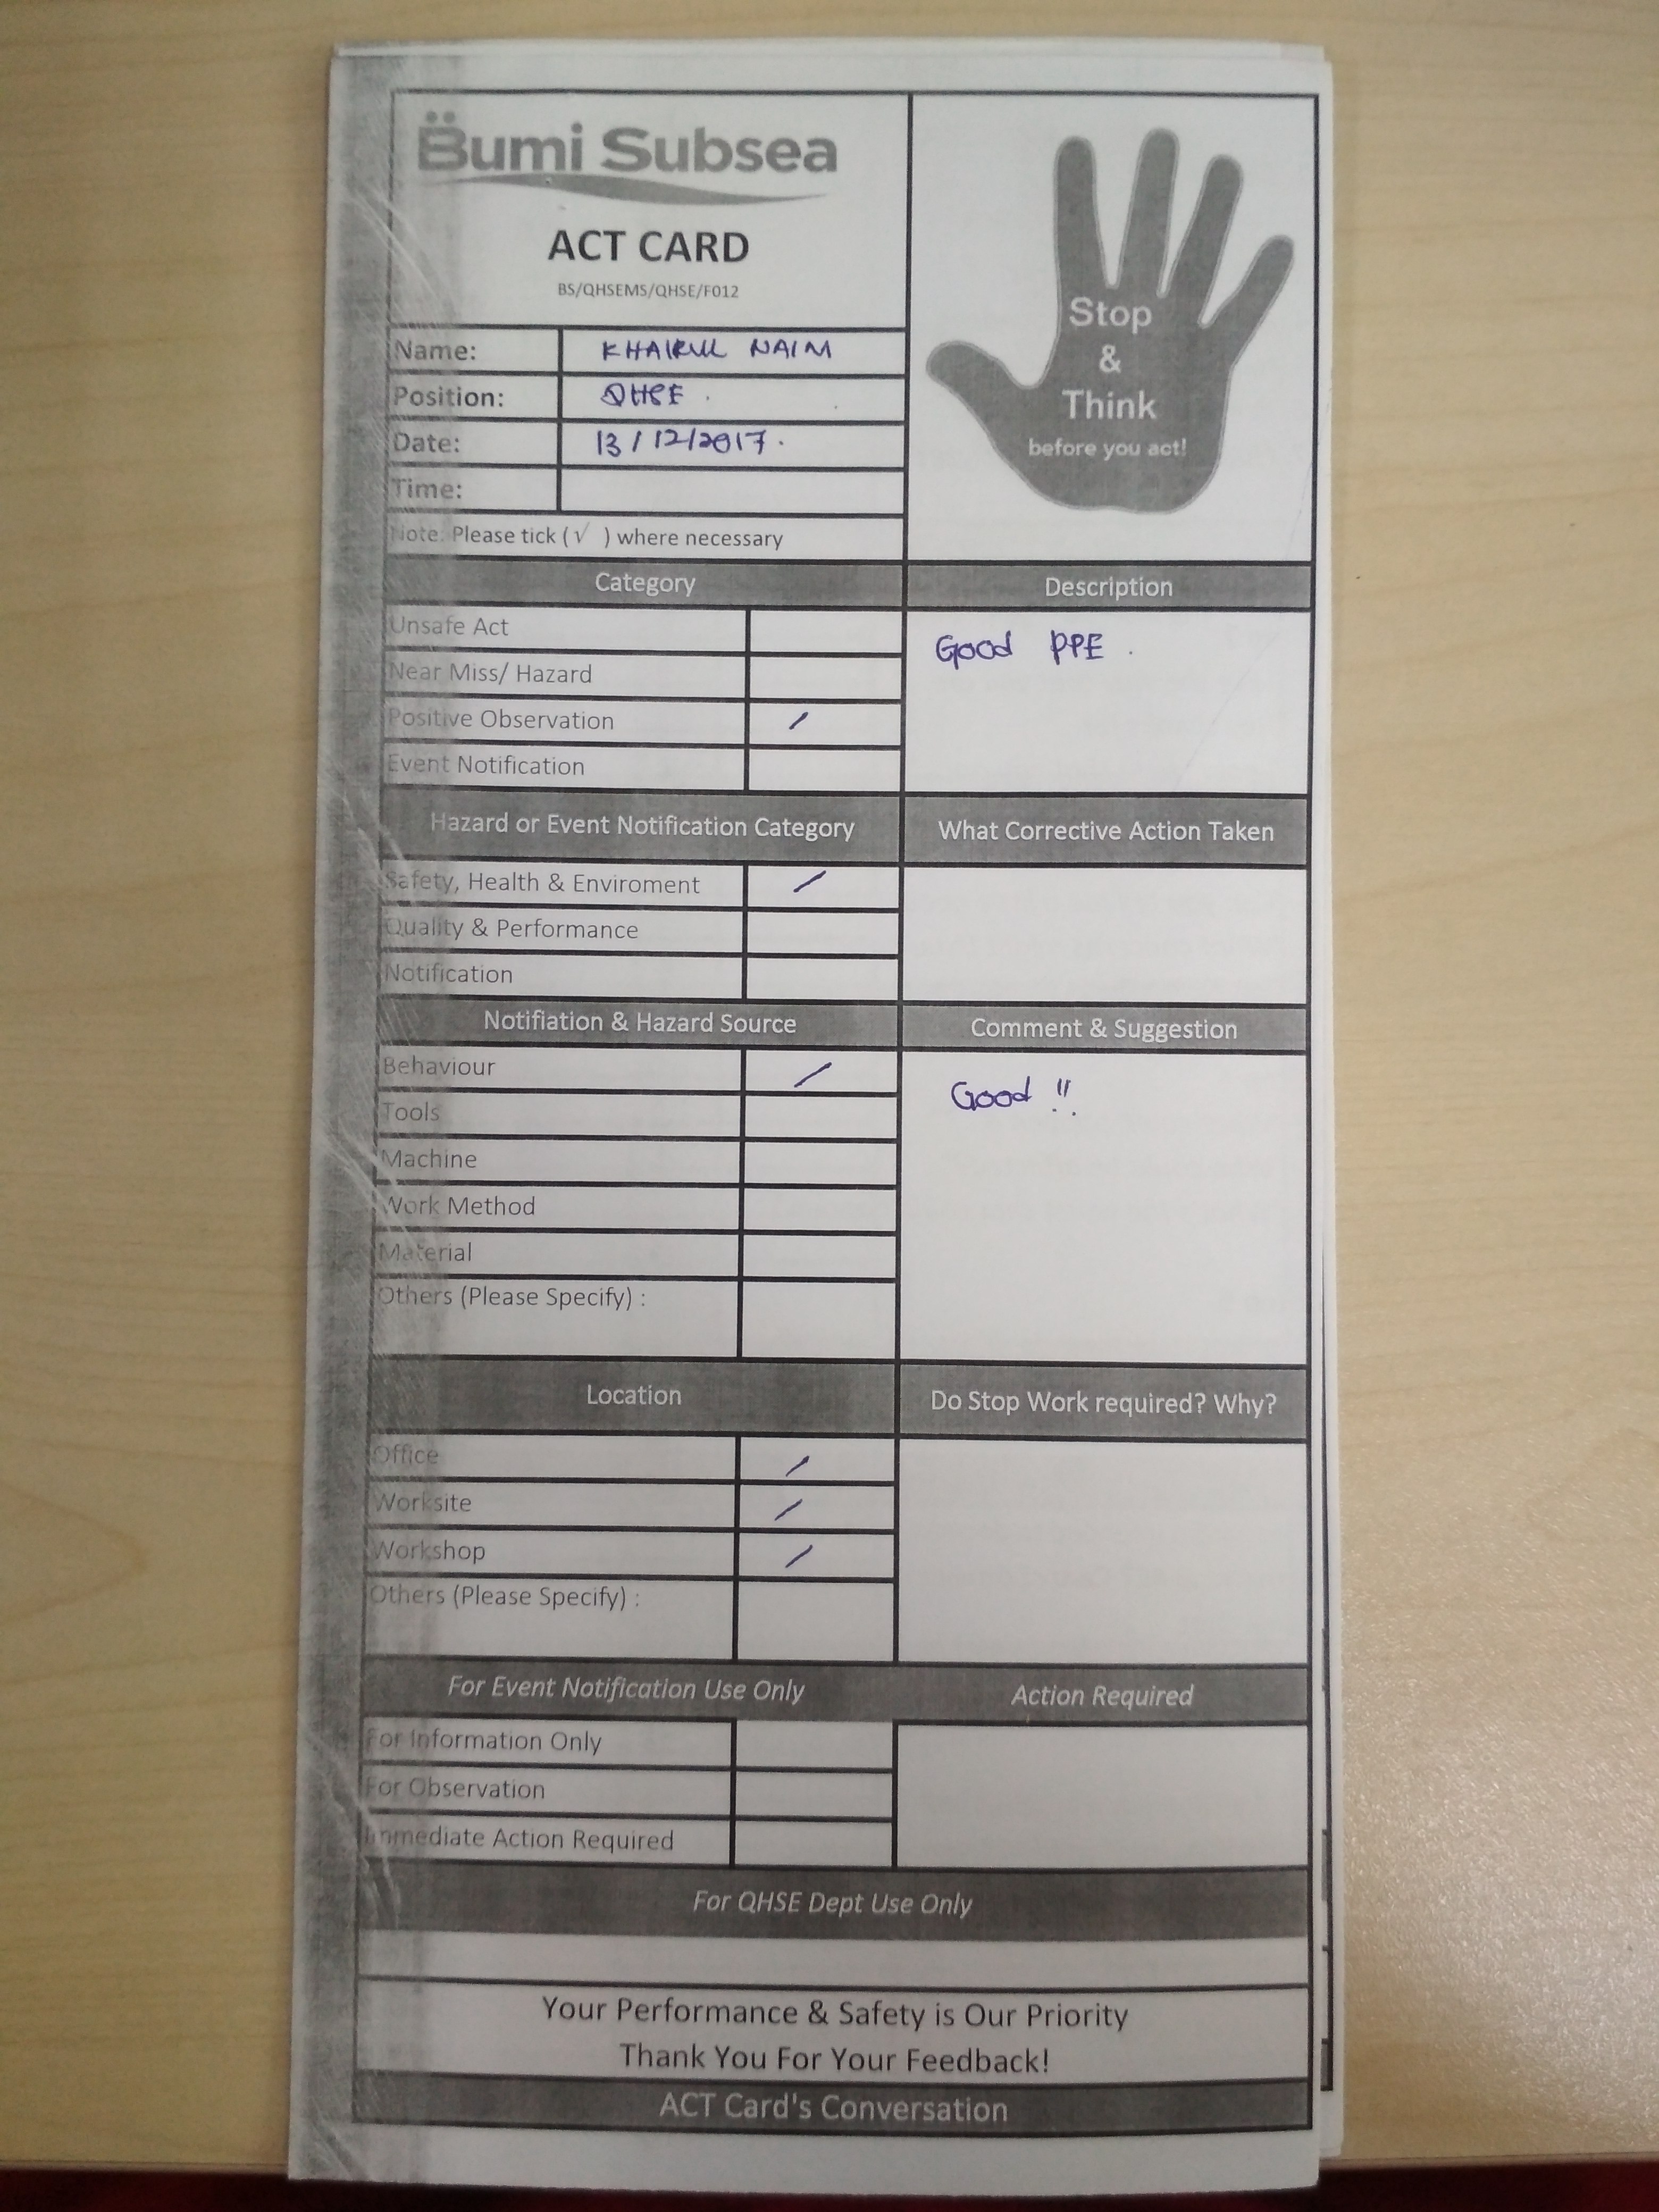 Bumi Subsea
ACT CARD
BS/QHSEMS/QHSE/F012
Stop
&
Think
before you act!
Name: KHAIRUL NAIM
Position: QHSE.
Date: 13/12/2017.
Time:
Note: Please tick (√ ) where necessary
Category
Unsafe Act
Near Miss/ Hazard
Positive Observation /
Event Notification
Description
Good PPE.
Hazard or Event Notification Category
Safety, Health & Enviroment /
Quality & Performance
Notification
What Corrective Action Taken
Notifiation & Hazard Source
Behaviour /
Tools
Machine
Work Method
Material
Others (Please Specify) :
Comment & Suggestion
Good !!
Location
Office /
Worksite /
Workshop /
Others (Please Specify) :
Do Stop Work required? Why?
For Event Notification Use Only
For Information Only
For Observation
Immediate Action Required
Action Required
For QHSE Dept Use Only
Your Performance & Safety is Our Priority
Thank You For Your Feedback!
ACT Card's Conversation